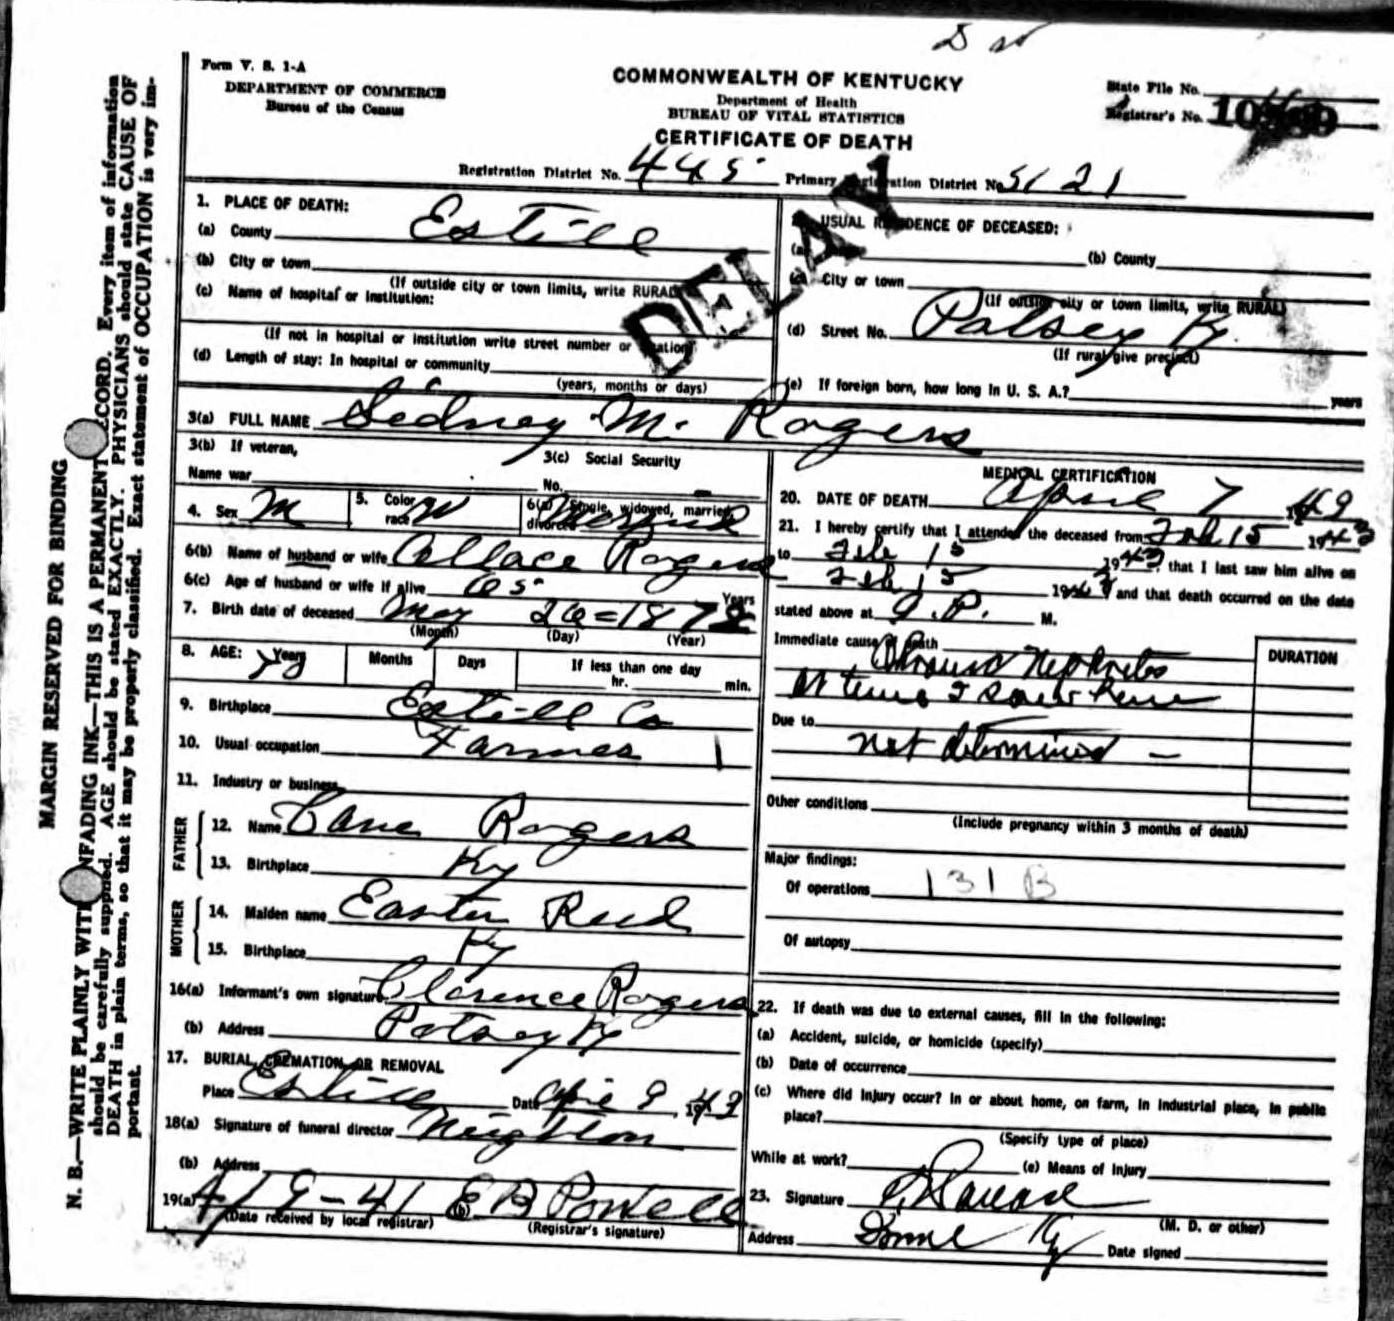 D
Form V. S. 1-A
DEPARTMENT OF COMMERCE
Bureau of the Census
COMMONWEALTH OF KENTUCKY
Department of Health
BUREAU OF VITAL STATISTICS
CERTIFICATE OF DEATH
State File No.
Registrar's No.
Registration District No. 445 Primary Registration District No. 5121
DELAY
1. PLACE OF DEATH:
(a) County Estill
(b) City or town
(If outside city or town limits, write RURAL)
(c) Name of hospital or institution:
(If not in hospital or institution write street number or location)
(d) Length of stay: In hospital or community
(years, months or days)
USUAL RESIDENCE OF DECEASED:
(a) (b) County
City or town
(If outside city or town limits, write RURAL)
(d) Street No. Patsey Ky
(If rural give precinct)
(e) If foreign born, how long in U. S. A.? years
3(a) FULL NAME Sidney M. Rogers
3(b) If veteran,
Name war
3(c) Social Security
No. —
4. Sex M 5. Color or race W 6(a) Single, widowed, married, divorced Married
6(b) Name of husband or wife Wallace Rogers
6(c) Age of husband or wife if alive 65 Years
7. Birth date of deceased May 26 = 187
(Month) (Day) (Year)
8. AGE: Years Months Days If less than one day
hr. min.
9. Birthplace Estill Co
10. Usual occupation Farmer
11. Industry or business
FATHER
12. Name Cane Rogers
13. Birthplace Ky
MOTHER
14. Maiden name Easter Reed
15. Birthplace Ky
16(a) Informant's own signature Clarence Rogers
(b) Address Patsey Ky
17. BURIAL, CREMATION, OR REMOVAL
Place Estill Date April 9, 1943
18(a) Signature of funeral director Neighbors
(b) Address
19(a) 4/19-41 (b) E B Powell
(Date received by local registrar) (Registrar's signature)
MEDICAL CERTIFICATION
20. DATE OF DEATH April 7 19
21. I hereby certify that I attended the deceased from Feb 15 1943
to Feb 15 1943, that I last saw him alive on
Feb 15 1943 and that death occurred on the date
stated above at P. M.
Immediate cause of death Chronic Nephritis
At time I saw him
DURATION
Due to
not determined —
Other conditions
(Include pregnancy within 3 months of death)
Major findings:
Of operations 131 B
Of autopsy
22. If death was due to external causes, fill in the following:
(a) Accident, suicide, or homicide (specify)
(b) Date of occurrence
(c) Where did injury occur? In or about home, on farm, in industrial place, in public
place?
(Specify type of place)
While at work? (e) Means of injury
23. Signature
(M. D. or other)
Address Ky Date signed
MARGIN RESERVED FOR BINDING
N. B.—WRITE PLAINLY WITH UNFADING INK—THIS IS A PERMANENT RECORD. Every item of information
should be carefully supplied. AGE should be stated EXACTLY. PHYSICIANS should state CAUSE OF
DEATH in plain terms, so that it may be properly classified. Exact statement of OCCUPATION is very im-
portant.